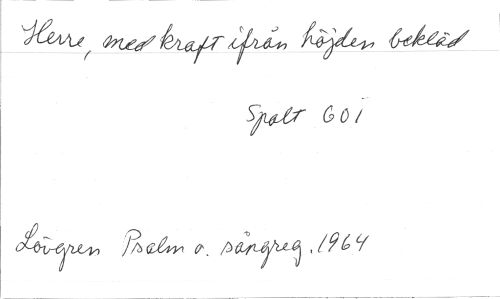 Herre, med kraft ifrån höjden bekläd
Spalt 601
Lövgren Psalm o. sångreg. 1964